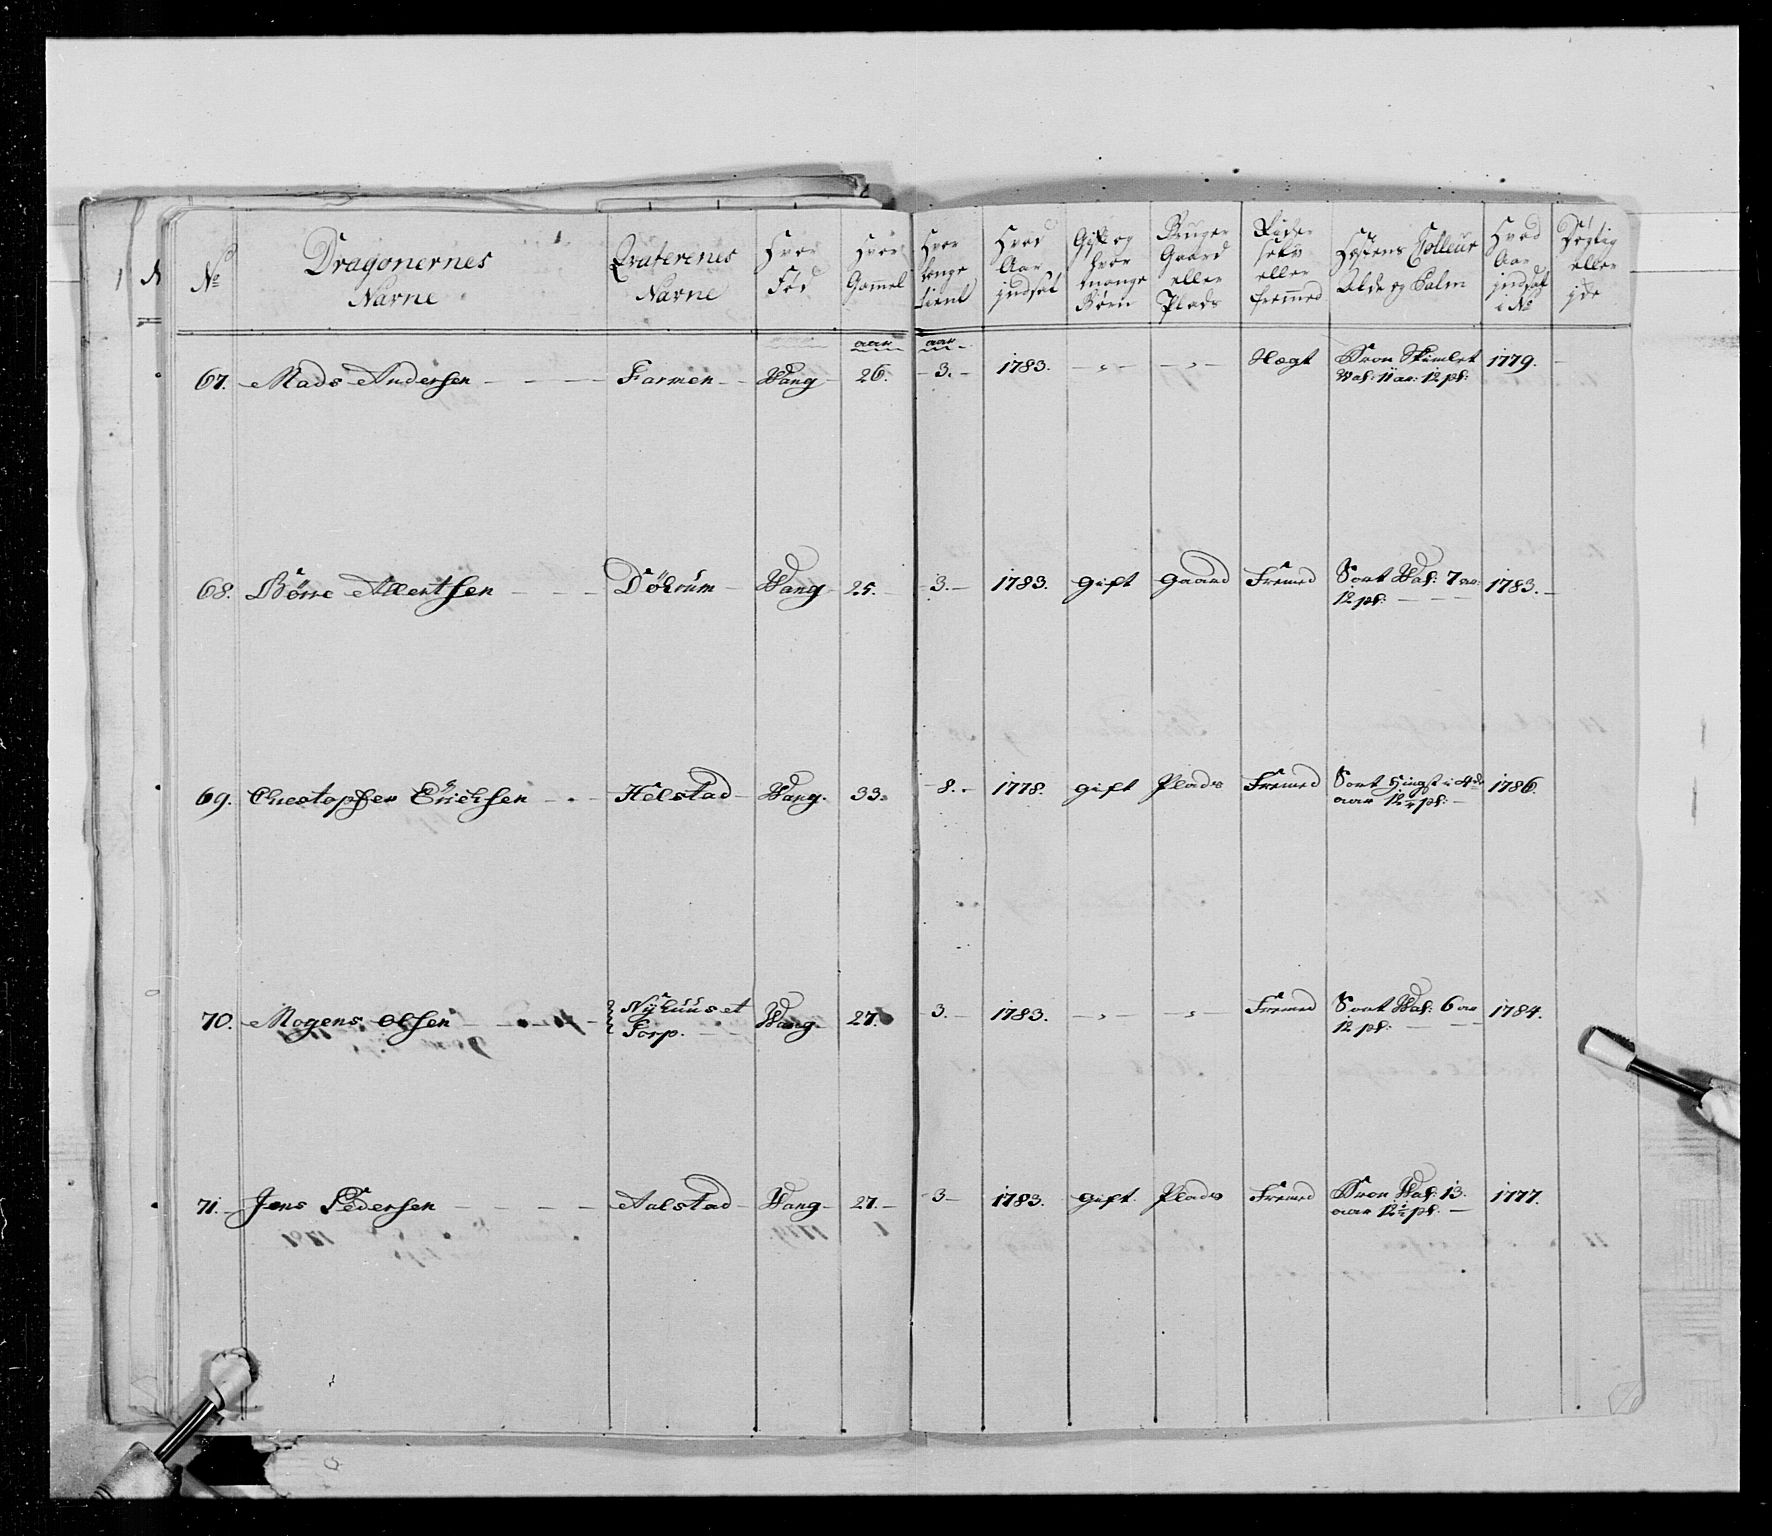 No
Dragonernes
Navne
Qvaterenes
Navne
Hvor
Fød
Hvor
Gammel
Hvor
længe
tient
Hvad
Aar
indsat
Gift og
hvor
mange
Børn
Bruger
Gaard
eller
Plads
Rider
selv
eller
fremmed
Hæstens Colleur
Alder og Palm
Hvad
Aar
indsat
i No
Dygtig
eller
ide
aar aar
67. Mads Andersen Farmen Wang 26. 3. 1783. Nægt Bron Skimlet 1779.
Wal: 11 aar: 12 pl:
68. Børre Allertsen Døhrum Wang 25. 3. 1783. gift gaard Fremed Sort Wal: 7 ar: 1783.
12 pl:
69. Christopher Erichsen Helstad Wang. 33. 8. 1778. gift Plads Fremed Sort Hingst i 4de 1786.
aar 12 1/4 pl:
70. Mogens Olsen Nÿhuus et Wang 27. 3. 1783. Fremed Sort Wal: 6 ar 1784.
Torp. 12 pl:
71. Jens Pedersen Aalstad Wang 27. 3 1783. gift. Plads Fremed Bron Wal: 13. 1777.
aar 12 1/2 pl: